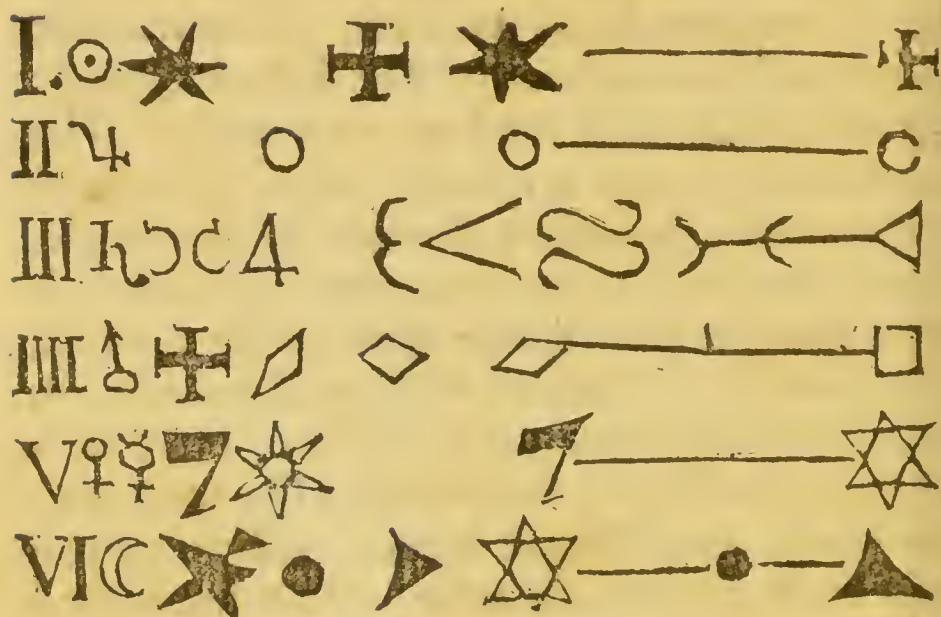 I. ☉
II ♃
III ♄ ☽ ♃
IIII ♂
V ♀ ☿ 7 7
VI ☾